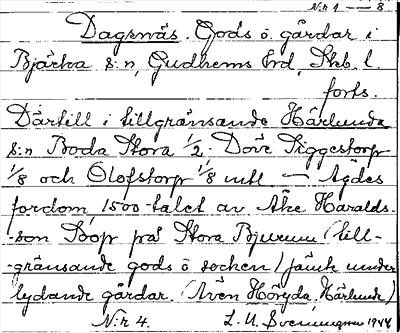 N:r 1 — 8.
Dagsnäs. Gods ö. gårdar i
Bjärka s:n, Gudhems hrd, Skb. l.
forts.
Därtill i tillgränsande Härlunda
s:n Boda Stora 1/2. Döve Siggestorp
1/8 och Olofstorp 1/8 mtl — Ägdes
fordom, 1500-talet av Åke Haralds-
-son Soop på Stora Bjurum (till-
-gränsande gods ö socken) jämte under
lydande gårdar. (Även Höryda, Härlunda)
N:r 4. L. U. Svenungson 1944